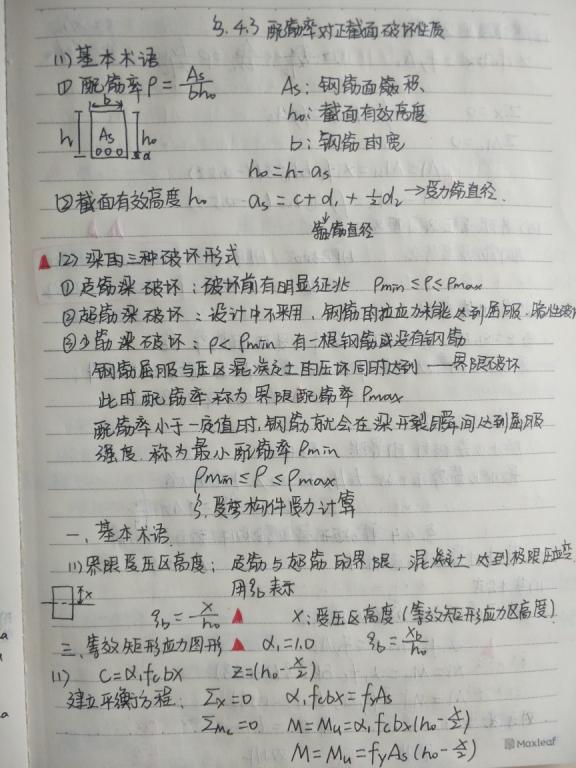 §.4.3 配筋率对正截面破坏性质
(1) 基本术语
① 配筋率ρ=As/bh₀ As: 钢筋面筋积.
b h₀: 截面有效高度
h As h₀ b: 钢筋的宽
a h₀=h-as
②截面有效高度h₀ as=c+d₁+½d₂→受力筋直径.
箍筋直径
▲ (2) 梁的三种破坏形式
① 适筋梁破坏: 破坏前有明显征兆 ρmin≤ρ≤ρmax
②超筋梁破坏: 设计中不采用, 钢筋的拉应力未能达到屈服, 脆性破
③少筋梁破坏: ρ<ρmin 有一根钢筋或没有钢筋
钢筋屈服与压区混凝土的压坏同时达到——界限破坏
此时配筋率称为界限配筋率ρmax
配筋率小于一定值时, 钢筋就会在梁开裂瞬间达到屈服
强度. 称为最小配筋率ρmin
ρmin≤ρ≤ρmax
§. 受弯构件受力计算
一. 基本术语.
(1) 界限受压区高度: 适筋与超筋的界限. 混凝土达到极限压应变.
用ξb表示
x ξb=x/h₀ ▲ x: 受压区高度(等效矩形应力区高度)
三. 等效矩形应力图形 ▲ α₁=1.0 ξb=xb/h₀
(1) C=α₁fcbx z=(h₀-x/2)
建立平衡方程: Σx=0 α₁fcbx=fyAs
ΣMc=0 M=Mu=α₁fcbx(h₀-x/2)
M=Mu=fyAs(h₀-x/2)
Maxleaf